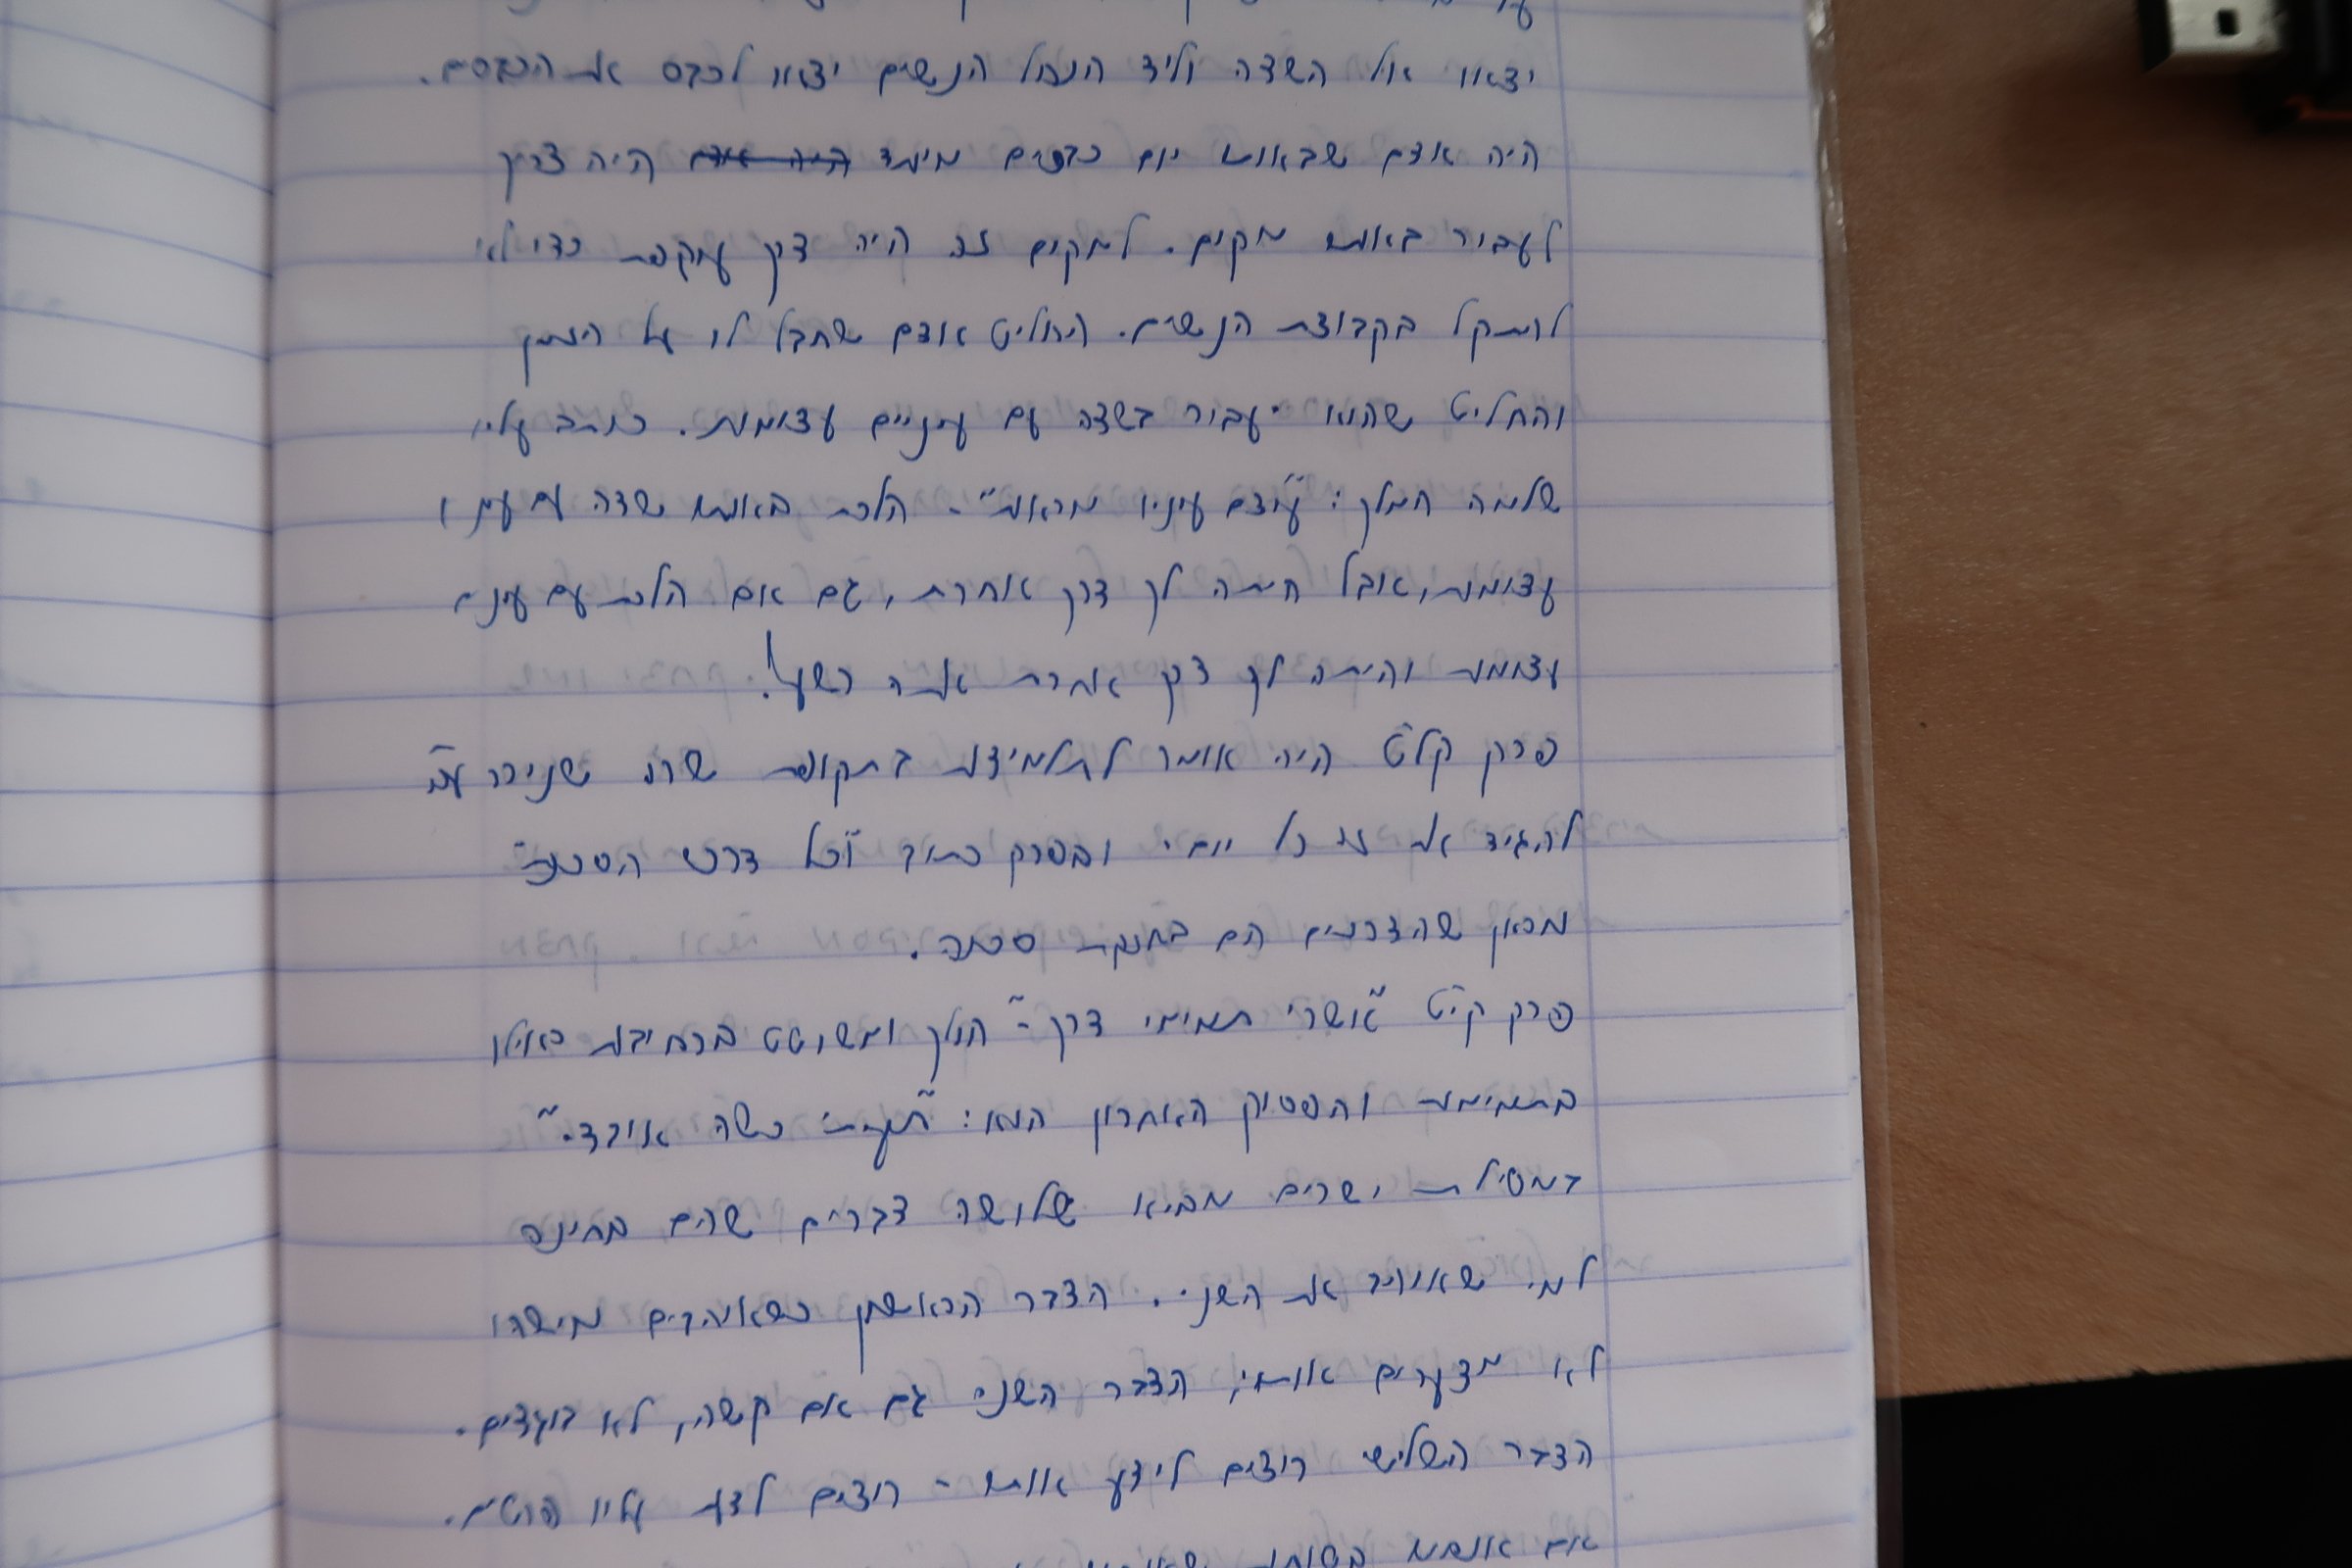 יצאו אל השדה וליד הנחל הנשים יצאו לכבס את הכבסים.
היה אדם שבאותו יום כבסים מיוחד היה צריך
לעבור באותו מקום. למקום זה היה דרך עוקפת כדי לא
להתקל בקבוצת הנשים. החליט אותו אדם שחבל לו על הזמן
והחליט שהוא יעבור בשדה עם עיניים עצומות. כותב עליו
שלמה המלך: "עוצם עיניו מראות" - הלכת באותו שדה עם עינ
עצומות, אבל היתה לך דרך אחרת, גם אם הלכת עם עינים
עצומות והיתה לך דרך אחרת אתה רשע!
פרק קל"ט היה אומר לתלמידות בתקופת שרה שנירר ע"ה
להגיד את זה כל יום. ובפרק כתוב "וכל דרכי הסכנת"
מכאן שהדרכים הם בחזקת סכנה.
פרק קי"ט "אשרי תמימי דרך" הולך ומשוטט ברחובות כאילו
בתמימות והפסוק האחרון הוא: "תעיתי כשה אובד."
במסילת ישרים מביא שלושה דברים שהם בחינה
למי שאוהב את השני. הדבר הראשון כשאוהבים מישהו
לא מצערים אותו, הדבר השני גם אם קשה, לא בוגדים.
הדבר השלישי רוצים לידע אותו - רוצים לדעת עליו פרטים.